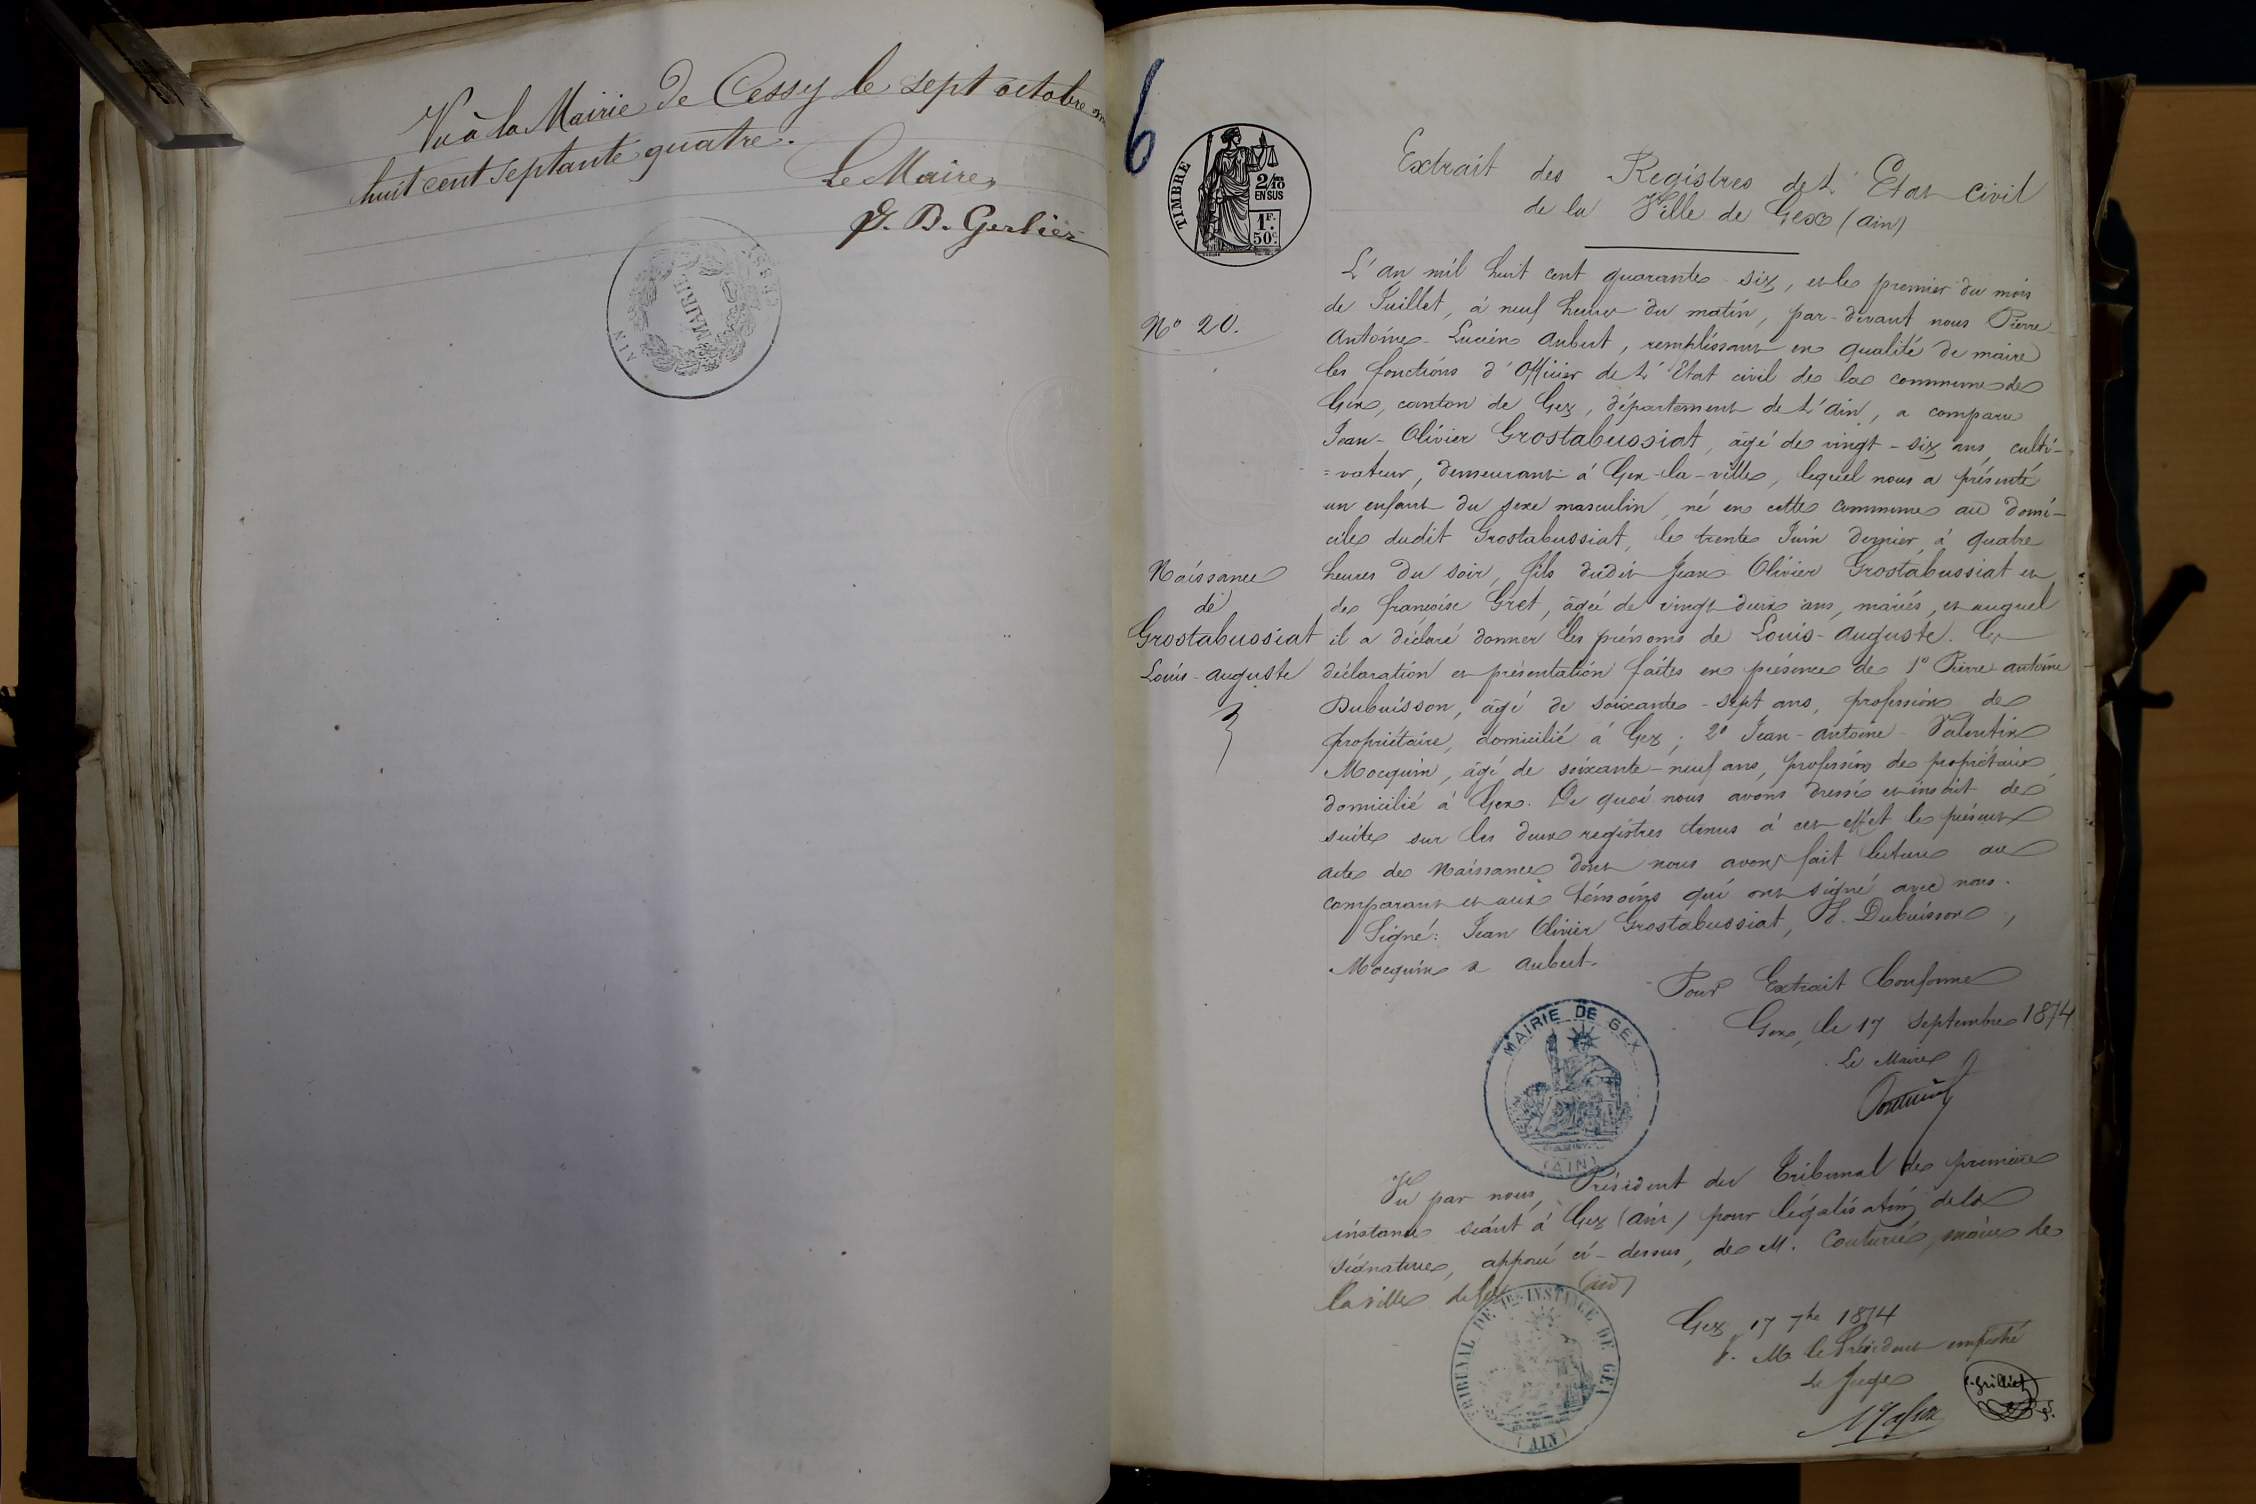 Vu à la Mairie de Cessy le sept octobre
huit cent septante quatre.
Le Maire,
J. B. Gerlier
CESSY
MAIRIE
AIN
6
TIMBRE
2/10
EN SUS
1F.
50c.
Extrait des Registres de L'Etat civil
de la Ville de Gex (ain)
L'an mil huit cent quarante-six, et le premier du mois
de Juillet, à neuf heures du matin, par-devant nous Pierre
N° 20.
Antoine-Lucien Aubert, remplissant en qualité de maire
les fonctions d'Officier de L'Etat civil de la commune de
Gex, canton de Gex, département de L'ain, a comparu
Jean-Olivier Grostabussiat, âgé de vingt-six ans, culti-
=vateur, demeurant à Gex-la-ville, lequel nous a présenté
un enfant du sexe masculin, né en cette commune au domi-
cile dudit Grostabussiat, le trente Juin dernier, à quatre
heures du soir, fils dudit Jean Olivier Grostabussiat et
de françoise Gret, âgée de vingt deux ans, mariés, et auquel
il a déclaré donner les prénoms de Louis-Auguste. Les
Naissance
de
Grostabussiat
Louis-Auguste
déclaration et présentation faites en présence de 1° Pierre antoine
Dubuisson, âgé de soixante-sept ans, profession de
propriétaire, domicilié à Gex; 2° Jean-Antoine-Valentin
Mocquin, âgé de soixante-neuf ans, profession de propriétaire,
domicilié à Gex. De quoi nous avons dressé et inscrit de
suite sur les deux registres tenus à cet effet le présent
acte de Naissance dont nous avons fait lecture au
comparant et aux témoins qui ont signé avec nous.
Signé: Jean Olivier Grostabussiat, Dubuisson,
Mocquin & Aubert.
Pour Extrait Conforme
Gex, le 17 Septembre 1874
Le Maire
MAIRIE DE GEX
(AIN)
Vu par nous, Président du Tribunal de première
instance séant à Gex (ain) pour légalisation de la
signature, apposée ci-dessus, de M. Couturier, maire de
la ville de Gex (ain)
TRIBUNAL DE 1ERE INSTANCE DE GEX
(AIN)
Gex 17 7bre 1874
P. M. le Président empêché
Le Juge